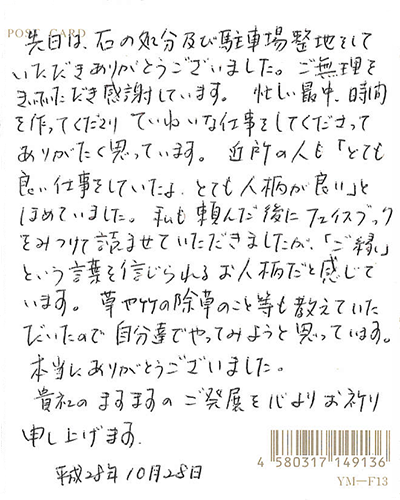 POST CARD
先日は、石の処分及び駐車場整地をして
いただきありがとうございました。ご無理を
きいていただき感謝しています。 忙しい最中、時間
を作ってくださり ていねいな仕事をしてくださって
ありがたく思っています。 近所の人も「とても
良い仕事をしていたよ、とても人柄が良い」と
ほめていました。 私も頼んだ後にフェイスブック
をみつけて読ませていただきましたが、「ご縁」
という言葉を信じられるお人柄だと感じて
います。 草や竹の除草のこと等も教えていた
だいたので 自分達でやってみようと思っています。
本当にありがとうございました。
貴社のますますの ご発展を心よりお祈り
申し上げます.
平成28年10月28日
4 580317 149136
YM-F13